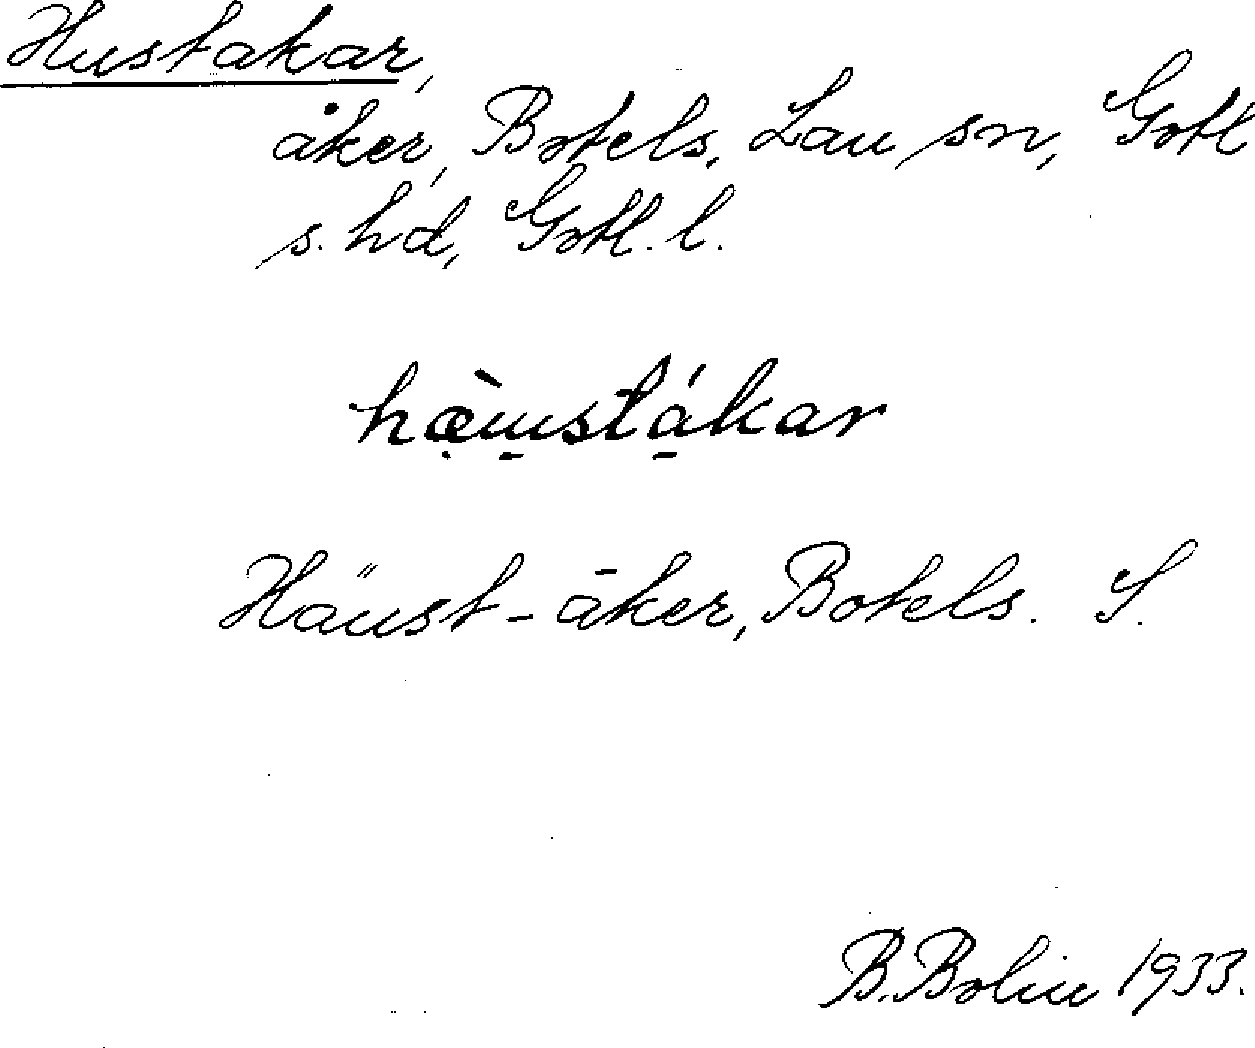 Hustakar,
åker, Botels, Lau sn, Gotl
s. hd, Gotl. l.
hæ̣̀u̠stá̠kar
Häust-āker, Botels. S.
B. Bolin 1933.